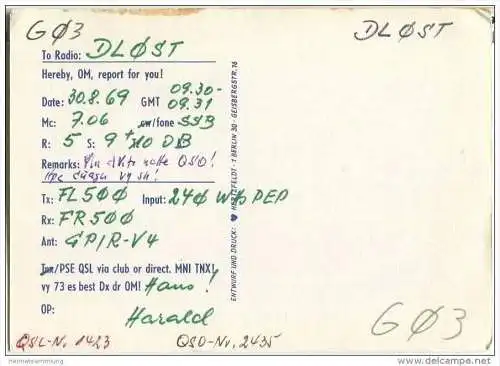 GØ3
DLØST
To Radio: DLØST
Hereby, OM, report for you!
Date: 30.8.69 GMT 09.30-
09.31
Mc: 7.06 cw/fone SSB
R: 5 S: 9 +10 DB
Remarks: QSO!
Tx: FL500 Input: 240 W PEP
Rx: FR500
Ant: GPIR-V4
Tnx/PSE QSL via club or direct. MNI TNX!
vy 73 es best Dx dr OM! Hans!
OP: Harald
QSL-Nr. 1423 QSO-Nr. 2435
GØ3
ENTWURF UND DRUCK: ♥ HARTZFELDT · 1 BERLIN 30 · GEISBERGSTR. 16
heimatsammlung.de
delcampe.net